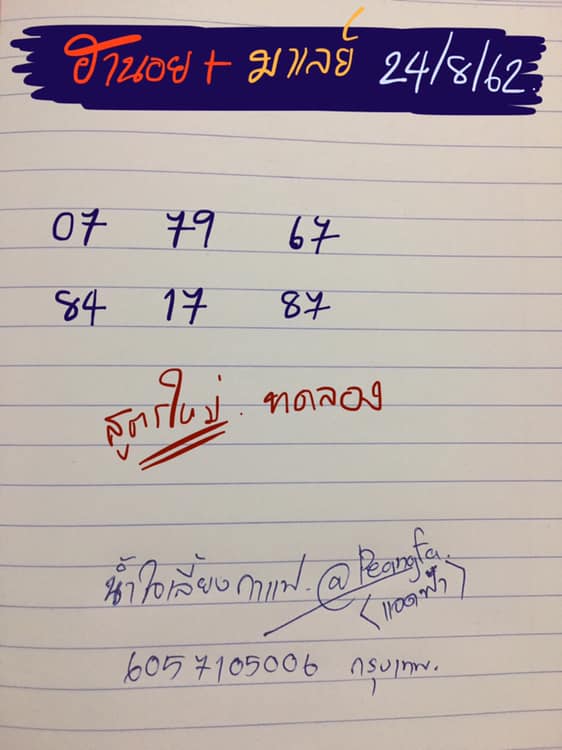 ฮานอย + มาเลย์ 24/8/62.
07 79 67
84 17 87
สูตรใหม่. ทดลอง
น้ำใจเลี้ยงกาแฟ. @Peangfa.
(แอดฟ้า)
6057105006 กรุงเทพ.